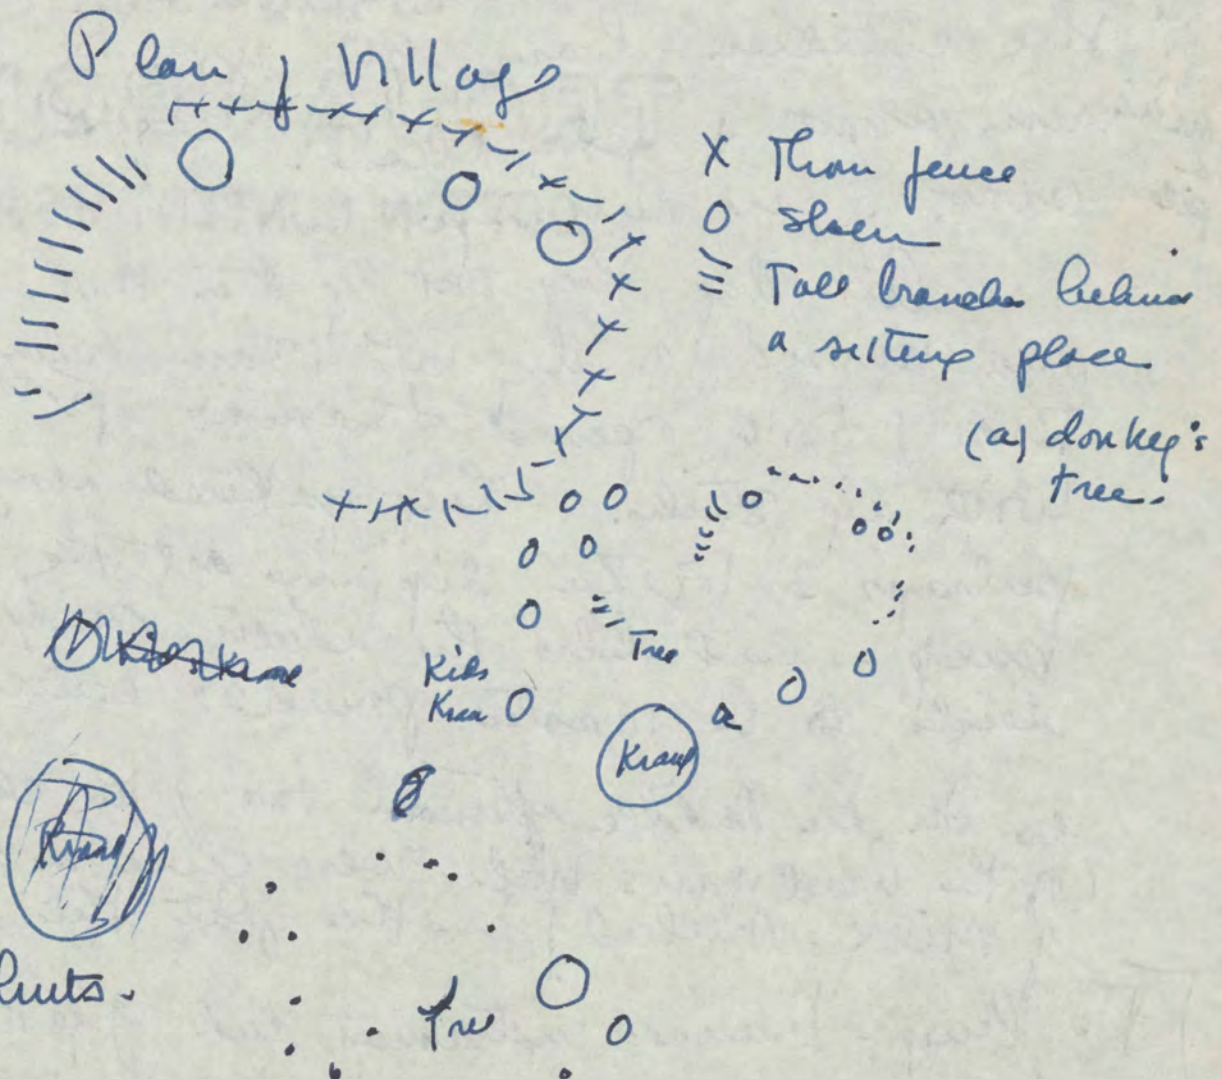 Plan of Village
X Thorn fence
O
Tall branches behind
a sitting place
(a) donkey's
tree.
Tree
Kids
Kraal
a
Kraal
Kraal
huts.
Tree